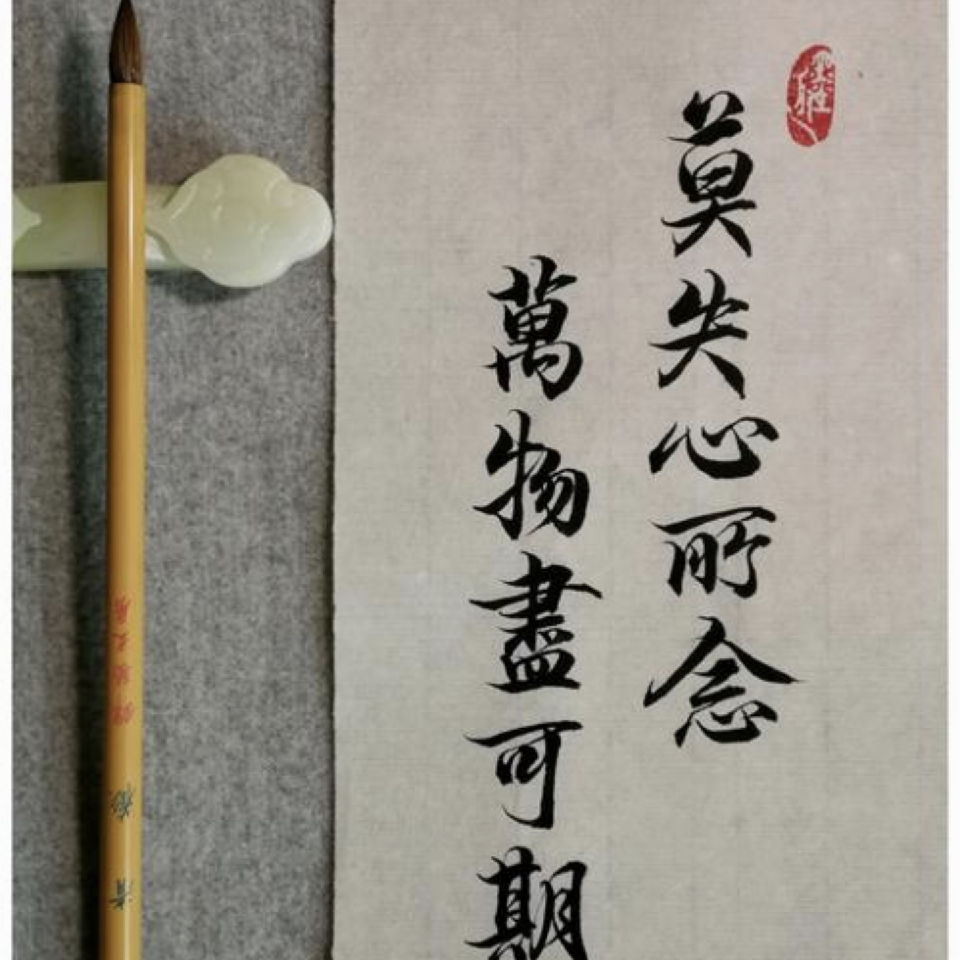 莫失心所念
萬物盡可期